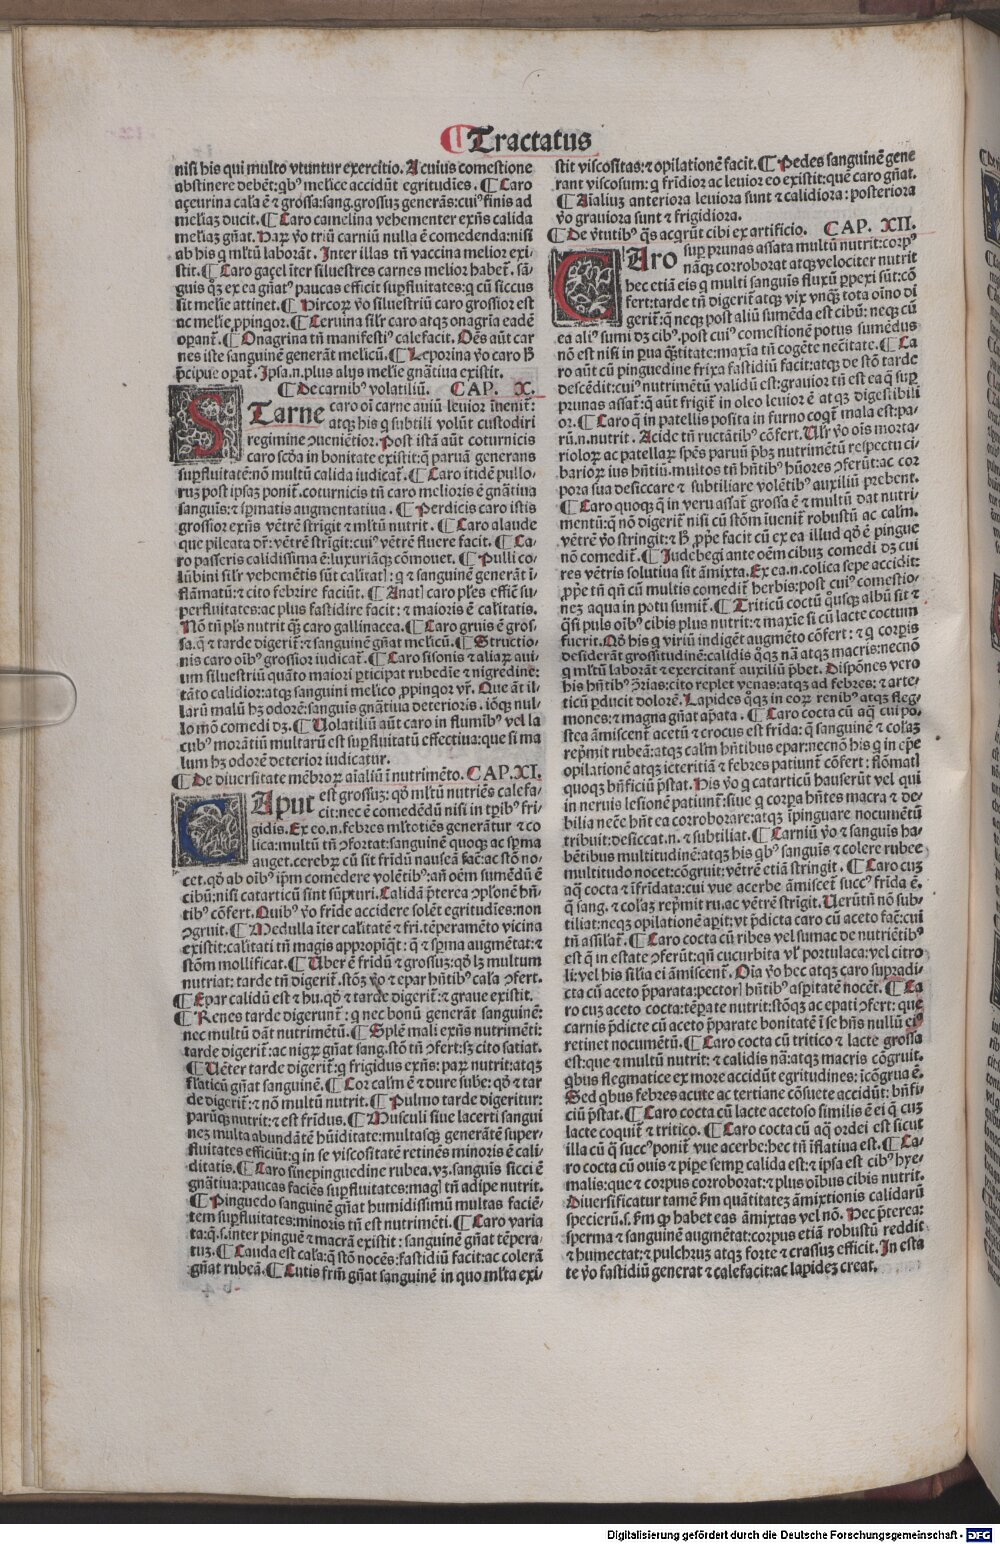 ¶Tractatus
nisi his qui multo vtuntur exercitio. A cuius comestione
abstinere debēt: qbꝰ melice accidūt egritudīes. ¶Caro
açeurina cala ē ⁊ grossa: sang. grossuꝫ generās: cuiꝰ finis ad
meliaꝫ ducit. ¶Caro camelina vehementer exn̄s calida
meliaꝫ gn̄at. Haꝝ v̄o triū carniū nulla ē comedenda: nisi
ab his q mltū laborāt. Inter illas tn̄ vaccina melior exi-
stit. ¶Caro gaçel īter siluestres carnes melior habet̄. sā-
guis qꝫ ex ea gn̄atꝰ paucas efficit suꝑfluitates: q cū siccus
sūt melie attinet. ¶Hircoꝝ v̄o siluestriū caro grossior est
ac melie ꝓpinqor. ¶Ceruina silr̄ caro atqꝫ onagria eadē
oꝑant̄. ¶Onagrina tn̄ manifestiꝰ calefacit. Oēs aūt car
nes iste sanguinē generāt melicū. ¶Leporina v̄o caro ꝕ
p̄cipue oꝑat̄. Ipsa. n. plus alijs melie gn̄atiua existit.
¶De carnibꝰ volatiliū. CAP. X.
STarne caro oī carne auiū leuior īuenit̄:
atqꝫ his q subtili volūt custodiri
regimine ↄueniētior. Post istā aūt coturnicis
caro scd̄a in bonitate existit: q paruā generans
suꝑfluitatē: nō multū calida iudicat̄. ¶Caro itidē pullo-
ruꝫ post ipsaꝫ ponit̄. coturnicis tn̄ caro melioris ē gn̄atiua
sanguīs: ⁊ sꝑmatis augmentatiua. ¶Perdicis caro istis
grossior exn̄s vētrē strīgit ⁊ mltū nutrit. ¶Caro alaude
que pileata dr̄: vētrē strīgit: cuiꝰ vētrē fluere facit. ¶Ca-
ro passeris calidissima ē: luxuriāqꝫ cōmouet. ¶Pulli co-
lūbini silr̄ vehemētis sūt calitat]: q ⁊ sanguinē generāt ī
flāmatū: ⁊ cito febrire faciūt. ¶Anat] caro pl̄es effic̄ su-
perfluitates: ac plus fastidire facit: ⁊ maioris ē cal̄itatis.
Nō tn̄ pl̄s nutrit qꝫ caro gallinacea. ¶Caro gruis ē gros-
sa. q̄ ⁊ tarde digerit̄: ⁊ sanguinē gn̄at melicū. ¶Structio-
nis caro oībꝰ grossior iudicat̄. ¶Caro sisonis ⁊ aliaꝝ aui-
um siluestriū quāto maiori ꝑticipat rubedīe ⁊ nigredine:
tāto calidior: atqꝫ sanguini melico ꝓpinqor vr̄. Que āt il-
larū malū hꝫ odorē: sanguīs gn̄atiua deterioris. iōqꝫ nul-
lo mō comedi dꝫ. ¶Uolatiliū aūt caro in fluminībꝰ vel la
cubꝰ morātiū multarū est suꝑfluitatū effectiua: que si ma
lum hꝫ odorē deterior iudicatur.
¶De diuersitate mēbroꝝ aīaliū ī nutrimēto. CAP. XI.
CAput est grossuꝫ: qđ mltū nutriēs calefa-
cit: nec ē comedēdū nisi in tꝑibꝰ fri-
gidis. Ex eo. n. febres mltotiēs generātur ⁊ co
lica: multū tn̄ ↄfortat: sanguinē quoqꝫ ac sꝑma
auget. cerebꝝ cū sit frīdū nauseā fac̄: ac stō no-
cet. qđ ab oībꝰ ip̄m comedere volētibꝰ: an̄ oēm sumēdū ē
cibū: nisi catarticū sint sūpturi. Calida p̄terea ↄplōnē hn̄
tibꝰ cōfert. Quibꝰ v̄o frīde accidere solēt egritudīes: non
ↄgruit. ¶Medulla īter calitatē ⁊ fri. tēperamēto vicina
existit: calitati tn̄ magis appropīqt: q̄ ⁊ sꝑma augmētat: ⁊
stōm mollificat. ¶Uber ē frīdū ⁊ grossuꝫ: qđ lꝫ multum
nutriat: tarde tn̄ digerit̄. stōꝫ v̄o ⁊ epar hn̄tibꝰ cala ↄfert.
¶Epar calidū est ⁊ hu. qđ ⁊ tarde digerit̄: ⁊ graue existit.
¶Renes tarde digerunt̄: q nec bonū generāt sanguinē:
nec multū dāt nutrimētū. ¶Splē mali exn̄s nutrimēti:
tarde digerit̄: ac nigꝝ gn̄at sang. stō tn̄ ↄfert: sꝫ cito satiat.
¶Uēter tarde digerit̄: q frigidus exn̄s: paꝝ nutrit: atqꝫ
flaticū gn̄at sanguinē. ¶Cor calm ē ⁊ dure sube: qđ ⁊ tar
de digerit̄: ⁊ nō multū nutrit. ¶Pulmo tarde digeritur:
parūqꝫ nutrit: ⁊ est frīdus. ¶Musculi siue lacerti sangui
neꝫ multa abundātē hūiditate: multasqꝫ generātē super-
fluitates efficiūt: q in se viscositatē retinēs minoris ē cali-
ditatis. ¶Caro sine pinguedine rubea. vꝫ. sanguīs sicci ē
gn̄atiua: paucas faciēs suꝑfluitates: mag] tn̄ adipe nutrit.
¶Pinguedo sanguinē gn̄at humidissimū multas faciē-
tem suꝑfluitates: minoris tn̄ est nutrimēti. ¶Caro varia
ta: q. s. inter pinguē ⁊ macrā existit: sanguinē gn̄at tēpera-
tuꝫ. ¶Cauda est cala: q stō nocēs: fastidiū facit: ac colerā
gn̄at rubeā. ¶Cutis frīm gn̄at sanguinē in quo ml̄ta exi-
stit viscositas: ⁊ opilationē facit. ¶Pedes sanguinē gene
rant viscosum: q frīdior ac leuior eo existit: que caro gn̄at.
¶Aīaliuꝫ anteriora leuiora sunt ⁊ calidiora: posteriora
v̄o grauiora sunt ⁊ frigidiora.
¶De v̄tutibꝰ qs acqrūt cibi ex artificio. CAP. XII.
CAro suꝑ prunas assata multū nutrit: corpꝰ
nāqꝫ corroborat atqꝫ velociter nutrit
hec etiā eis q multi sanguīs fluxū ꝑpexi sūt: cō
fert: tarde tn̄ digerit̄ atqꝫ vix vnqꝫ tota oīno di
gerit̄: q neqꝫ post aliū sumēda est cibū: neqꝫ cū
ea aliꝰ sumi dꝫ cibꝰ. post cuiꝰ comestionē potus sumēdus
nō est nisi in ꝑua qꝫtitate: maxīa tn̄ cogēte necītate. ¶Ca
ro aūt cū pinguedine frixa fastidiū facit: atqꝫ de stō tarde
descēdit: cuiꝰ nutrimētū validū est: grauior tn̄ est ea q suꝑ
prunas assat̄: q aūt frigit̄ in oleo leuior ē atqꝫ digestibili
or. ¶Caro q in patellis posita in furno coqt̄ mala est: pa-
rū. n. nutrit. Acide tn̄ ructātibꝰ cōfert. Ul̄r v̄o ois morta-
rioloꝝ ac patellaꝝ spēs paruū p̄bꝫ nutrimētū respectu ci-
barioꝝ ius hn̄tiū. multos tn̄ hn̄tibꝰ hūores ↄferūt: ac cor
pora sua desiccare ⁊ subtiliare volētibꝰ auxiliū prebent.
¶Caro quoqꝫ q in veru assat̄ grossa ē ⁊ multū dat nutri
mentū: q nō digerit̄ nisi cū stōm īuenit̄ robustū ac calm.
vētrē v̄o stringit: ⁊ ꝕ ꝓp̄e facit cū ex ea illud qđ ē pingue
nō comedit̄. ¶Iudehegi ante oēm cibuꝫ comedi dꝫ cui
res vētris solutiua sit āmixta. Ex ea. n. colica sepe accidit:
ꝓp̄e tn̄ qn̄ cū multis comedit̄ herbis: post cuiꝰ comestio-
neꝫ aqua in potu sumit̄. ¶Triticū coctū qusqꝫ albū sit ⁊
qsi puls oībꝰ cibis plus nutrit: ⁊ maxīe si cū lacte coctum
fuerit. Qđ his q viriū indigēt augmēto cōfert: ⁊ q corꝑis
desiderāt grossitudinē: calidis qqꝫ nā atqꝫ macris: necnō
q mltū laborāt ⁊ exercitant̄ auxiliū p̄bet. Dispōnes vero
his hn̄tibꝰ ↄrias: cito replet venas: atqꝫ ad febres: ⁊ arte-
ticū ꝑducit dolorē. Lapides qqꝫ in eoꝝ renibꝰ atqꝫ fleg-
mones: ⁊ magna gn̄at aꝑata. ¶Caro cocta cū aq cui po-
stea āmiscent̄ acetū ⁊ crocus est frīda: q sanguinē ⁊ colaꝫ
rep̄mit rubeā: atqꝫ calm̄ hn̄tibus epar: necnō his q in eꝑe
opilationē atqꝫ icteritiā ⁊ febres patiunt̄ cōfert: flōmatī
quoqꝫ bn̄ficiū p̄stat. His v̄o q catarticū hauserūt vel qui
in neruis lesionē patiunt̄: siue q corꝑa hn̄tes macra ⁊ de-
bilia nec̄e hn̄t ea corroborare: atqꝫ īpinguare nocumētū
tribuit: desiccat. n. ⁊ subtiliat. ¶Carniū v̄o ⁊ sanguīs ha-
bētibus multitudinē: atqꝫ his qbꝰ sanguīs ⁊ colere rubee
multitudo nocet: cōgruit: vētrē etiā stringit. ¶Caro cuꝫ
aq cocta ⁊ īfrīdata: cui vue acerbe āmiscet̄ succꝰ frīda ē.
q sang. ⁊ colaꝫ rep̄mit ru. ac vētrē strigit. Uerūtn̄ nō sub-
tiliat: neqꝫ opilationē aꝑit: vt p̄dicta caro cū aceto fac̄: cui
tn̄ assilat̄. ¶Caro cocta cū ribes vel sumac de nutriētibꝰ
est q in estate ↄferūt: qn̄ cucurbita vl̓ portulaca: vel citro
li: vel his silia ei āmiscent̄. Oīa v̄o hec atqꝫ caro supradi-
cta cū aceto p̄parata: pector] hn̄tibꝰ asꝑitatē nocēt. ¶Ca
ro cuꝫ aceto cocta: tēpate nutrit: stōqꝫ ac epati ↄfert: que
carnis p̄dicte cū aceto p̄parate bonitatē ī se hn̄s nullū eiꝰ
retinet nocumētū. ¶Caro cocta cū tritico ⁊ lacte grossa
est: que ⁊ multū nutrit: ⁊ calidis nā: atqꝫ macris cōgruit.
qbus flegmatice ex more accidūt egritudines: icōgrua ē.
Sed qbus febres acute ac tertiane cōsuete accidūt: bn̄fi-
ciū p̄stat. ¶Caro cocta cū lacte acetoso similis ē ei q cuꝫ
lacte coquit̄ ⁊ tritico. ¶Caro cocta cū aq ordei est sicut
illa cū q succꝰ ponit̄ vue acerbe: hec tn̄ īflatiua est. ¶Ca-
ro cocta cū ouis ⁊ piꝑe semꝑ calida est: ⁊ ipsa est cibꝰ hye-
malis: que ⁊ corpus corroborat: ⁊ plus oībus cibis nutrit.
Diuersificatur tamē fm̄ quātitateꝫ āmixtionis calidarū
specierū. s. fm̄ ꝙ habet eas āmixtas vel nō. Hec p̄terea:
sperma ⁊ sanguinē augmētat: corpus etiā robustū reddit
⁊ humectat: ⁊ pulchruꝫ atqꝫ forte ⁊ crassius efficit. In esta
te v̄o fastidiū generat ⁊ calefacit: ac lapideꝫ creat.
Digitalisierung gefördert durch die Deutsche Forschungsgemeinschaft - DFG